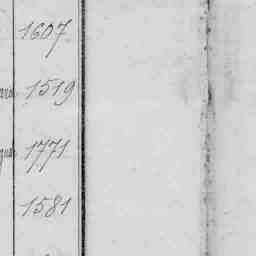 1607
1519
1771
1581